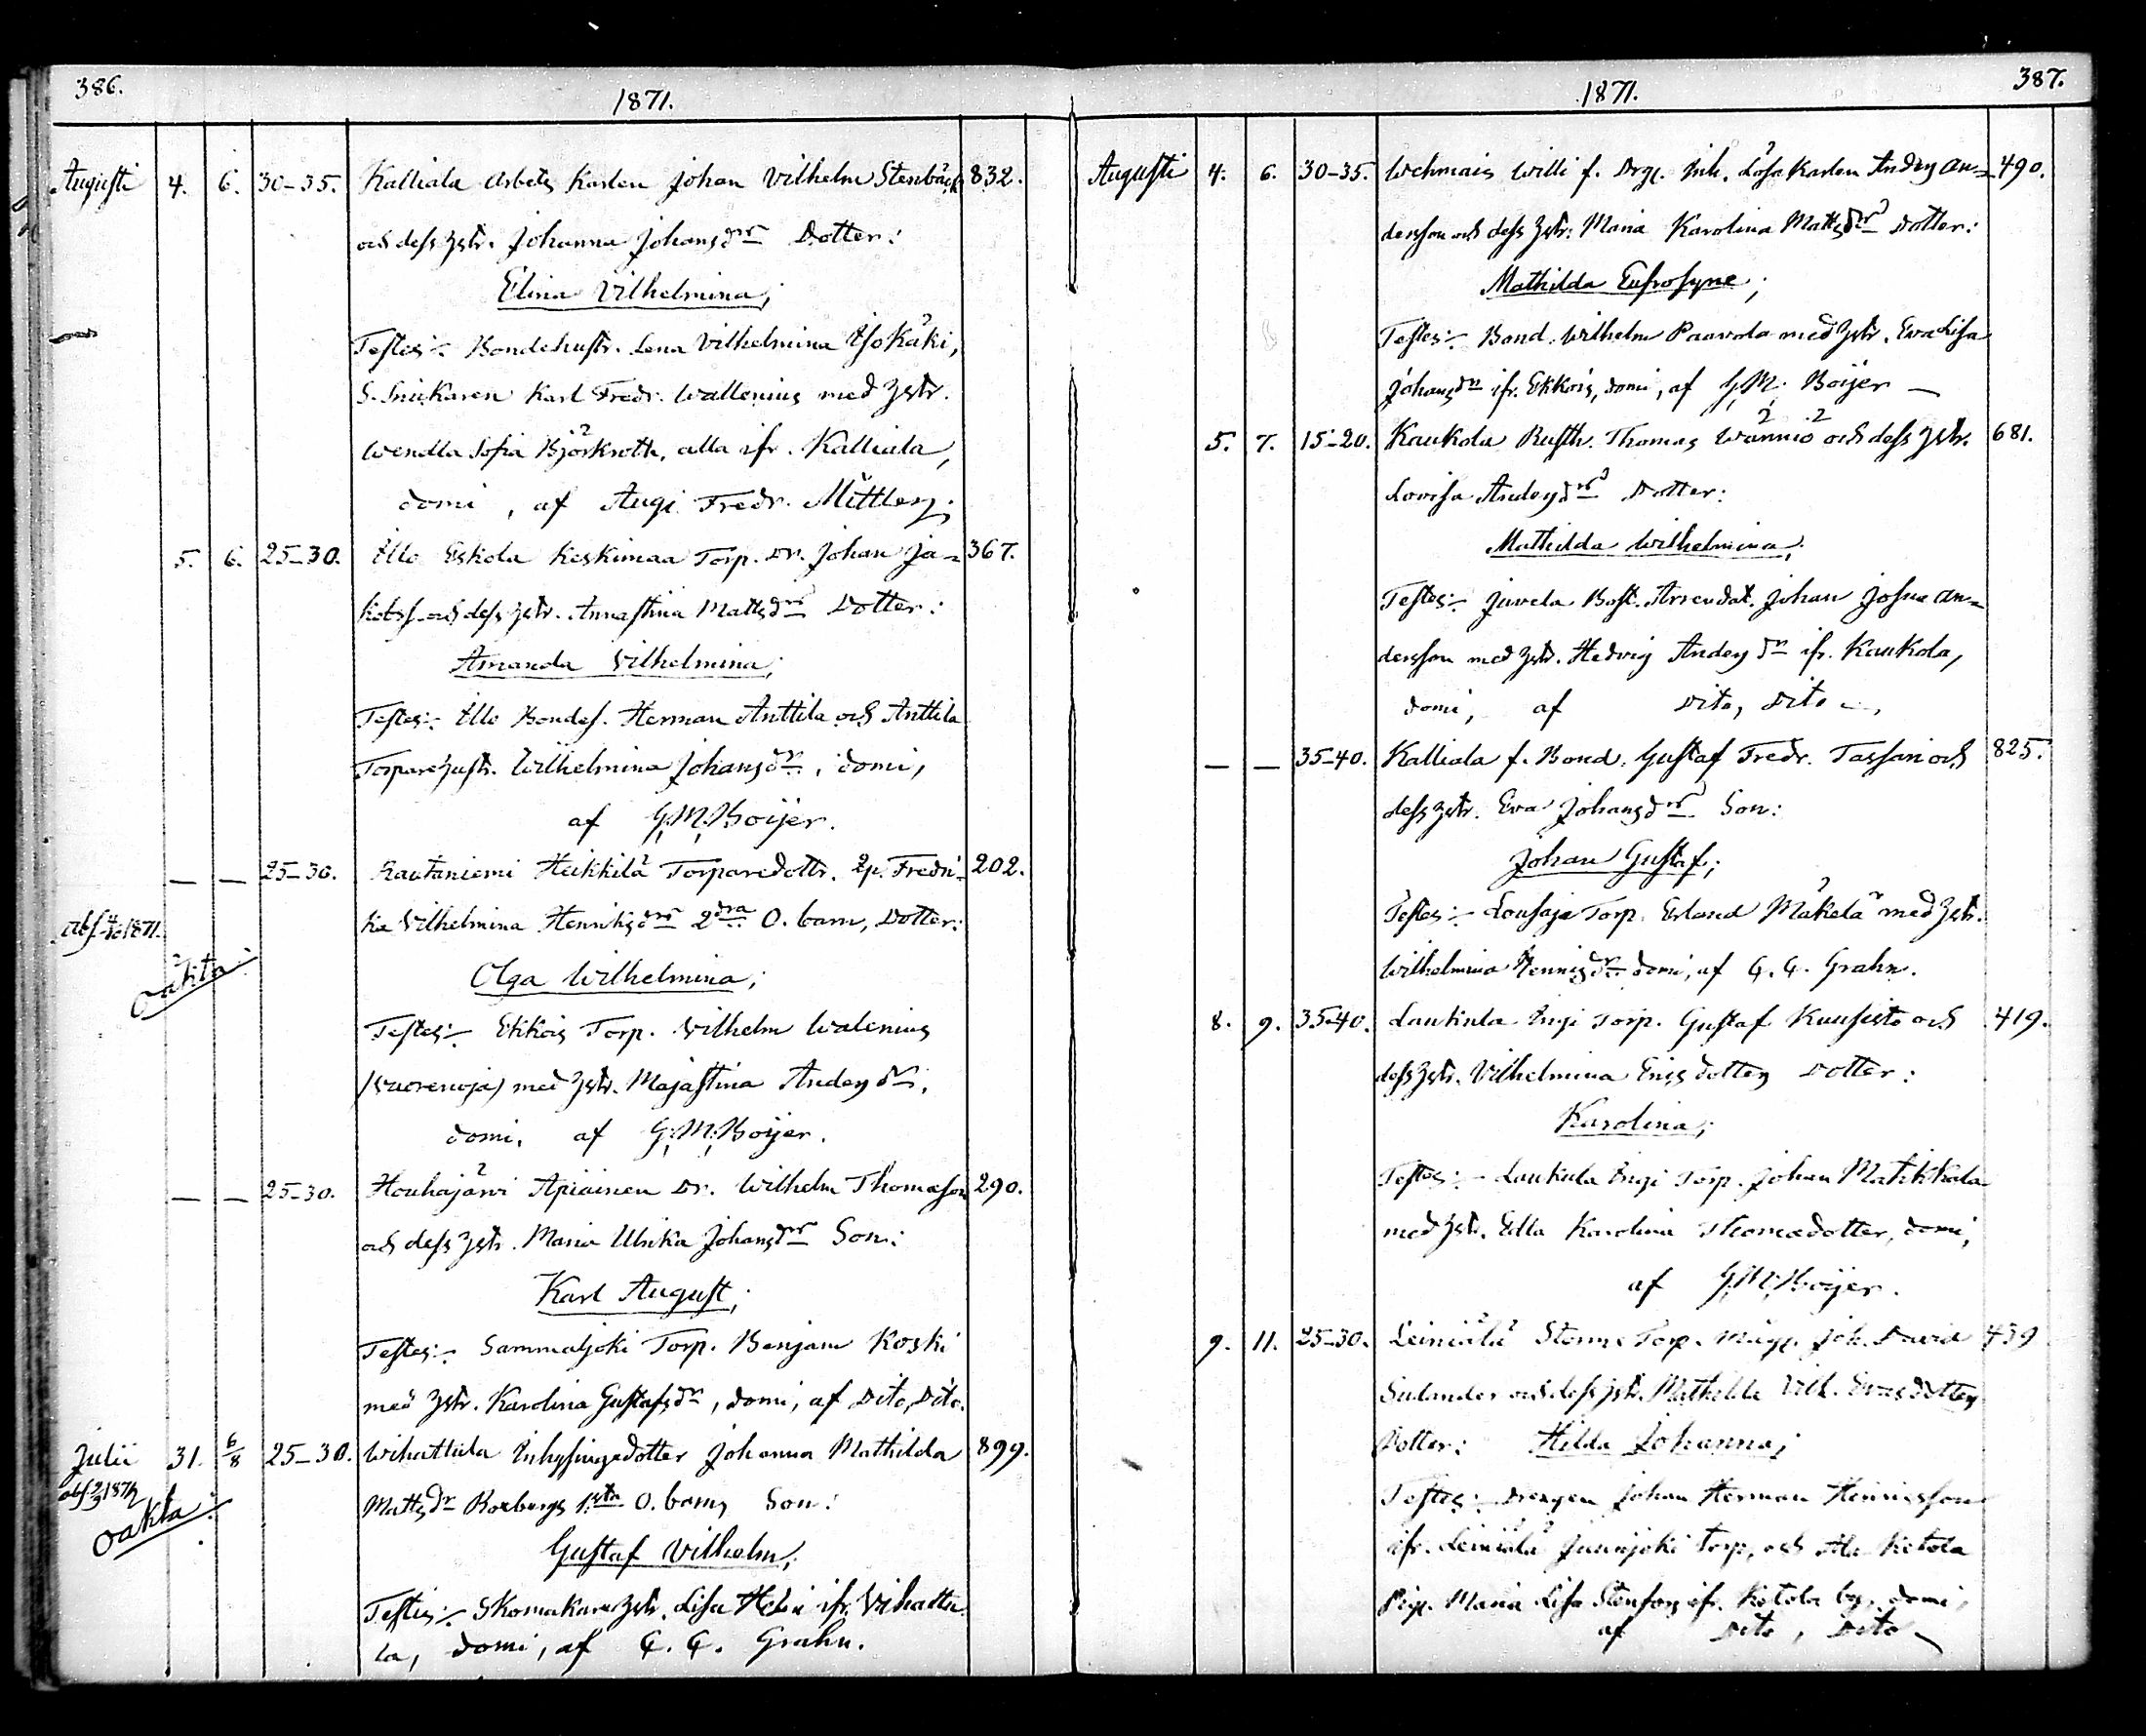 386.
1871.
Augusti 4. 6. 30-35. Kalliala Arbets Karlen Johan Vilhelm Stenbäck 832.
och dess hstr. Johanna Johansdr Dotter:
Elina Vilhelmina;
Testes:- Bondehustr. Lena Vilhelmina Iso Käki,
S. Snickaren Karl Fredr. Wallenius med hstr.
Wendla Sofia Björkroth, alla ifr. Kalliala,
domi, af Fredr. Mittler.
5. 6. 25-30. Illo Eskola Keskimaa Torp. Dr. Johan Ja= 367.
kobs. och dess hstr. Annastina Mattsdr Dotter:
Amanda Vilhelmina;
Testes:- Illo Bondes. Herman Anttila och Anttila
Torparehustr. Wilhelmina Johansdr., domi,
af G.M. Boijer.
— — 25-30. Rautaniemi Heikkilä Torparedottr. Fredri= 202.
ka Vilhelmina Henriksdr 2dra O. barn, Dotter:
abs. 1871.
oäkta
Olga Wilhelmina;
Testes:- Ekkois Torp. Vilhelm Walenius
(Vuorenoja) med hstr. Majastina Andersdr,
domi, af G.M. Boijer.
— — 25-30. Houhajärvi Apiainen Dr. Wilhelm Thomasson 290.
och dess hstr. Maria Ulrika Johansdr Son:
Karl August;
Testes:- Sammaljoki Torp. Benjam Koski
med hstr. Karolina Gustafsdr, domi, af Dito, Dito.
Julii 31. 6/8 25-30. Wihattula Inhysingedotter Johanna Mathilda 899.
oäkta
Mattsdr Roxbergs 1sta O. barn, Son:
Gustaf Vilhelm;
Testes:- Skomakarehstr. Lisa ifr. Vihattu
la, domi, af G. G. Grahn.
387.
1871.
Augusti 4. 6. 30-35. Wehmais Willi f. Drg. Inh. Lösa Karlen Anders An= 490.
dersson och dess hstr. Maria Karolina Mattsdr Dotter:
Mathilda Eufrosyne;
Testes:- Bond. Wilhelm Paavola med hstr. Eva Lisa
Johansdr ifr. Ekkois, domi, af G.M. Boijer —
5. 7. 15-20. Kaukola Rusth. Thomas Wänniö och dess hstr. 681.
Lovisa Andersdr Dotter:
Mathilda Wilhelmina;
Testes:- Juvela Bost. Arrendat. Johan Josua An=
dersson med hstr. Hedvig Andersdr ifr. Kaukola,
domi, af Dito, Dito —,
— — 35-40. Kalliala f. Bond. Gustaf Fredr. Tassari och 825.
dess hstr. Eva Johansdr Son:
Johan Gustaf;
Testes:- Lousaja Torp. Erland Mäkelä med hstr.
Wilhelmina Hennigsdr domi, af G. G. Grahn.
8. 9. 35-40. Laukula Torp. Gustaf Kuusisto och 419.
dess hstr. Vilhelmina Ericsdotters Dotter:
Karolina;
Testes:- Laukula Torp. Johan Mahkkala
med hstr. Edla Karolina Thomædotter, domi,
af G.M. Boijer.
9. 11. 25-30. Leiniälä Torp. Måg. Joh. David 439
Sulander och dess hstr. Mathilda Vilh. Evasdotters
Dotter: Hilda Johanna;
Testes:- Drengen Johan Herman Henriksson
ifr. Leiniälä Junnjoki Torp, och Ala Ketola
Pig. Maria Lisa Stenfors ifr. Ketola by, domi,
af Dito, Dito —